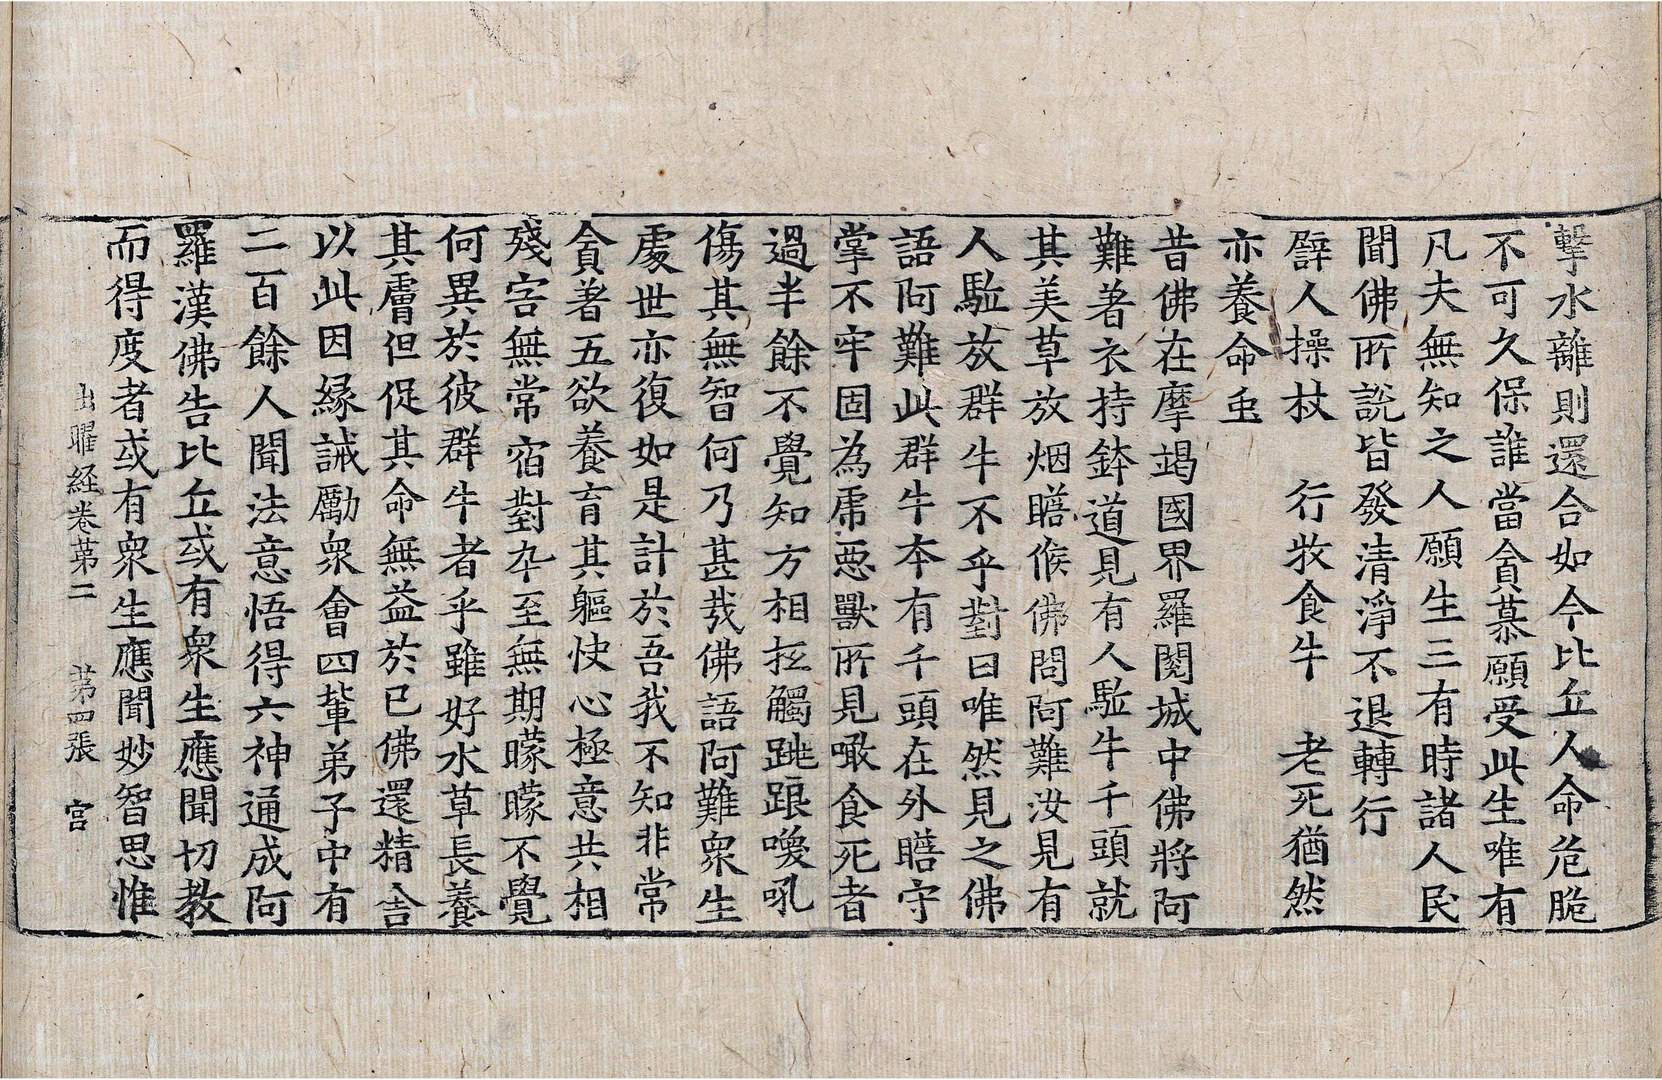 擊水離則還合如今比丘人命危脆
不可久保誰當貪慕願受此生唯有
凡夫無知之人願生三有時諸人民
聞佛所説皆發清淨不退轉行
辟人操杖　行牧食牛　老死猶然
亦養命虫
昔佛在摩竭國界羅閱城中佛將阿
難著衣持鉢道見有人駈牛千頭就
其美草放烟瞻候佛問阿難汝見有
人駈放群牛不乎對曰唯然見之佛
語阿難此群牛本有千頭在外瞻守
掌不牢固為虎惡獸所見噉食死者
過半餘不覺知方相抂觸跳踉喚吼
傷其無智何乃甚哉佛語阿難衆生
處世亦復如是計於吾我不知非常
貪著五欲養育其軀快心極意共相
殘害無常宿對卒至無期矇矇不覺
何異於彼群牛者乎雖好水草長養
其膚但促其命無益於已佛還精舍
以此因緣誡勵衆會四輩弟子中有
二百餘人聞法意悟得六神通成阿
羅漢佛告比丘或有衆生應聞切教
而得度者或有衆生應聞妙智思惟
出曜経卷苐二　苐四張　宮